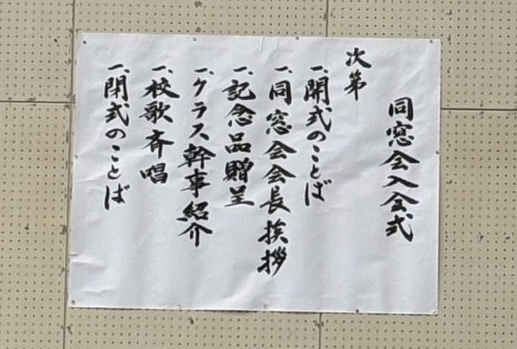 同窓会入会式
次第
一、開式のことば
一、同窓会会長挨拶
一、記念品贈呈
一、クラス幹事紹介
一、校歌斉唱
一、閉式のことば